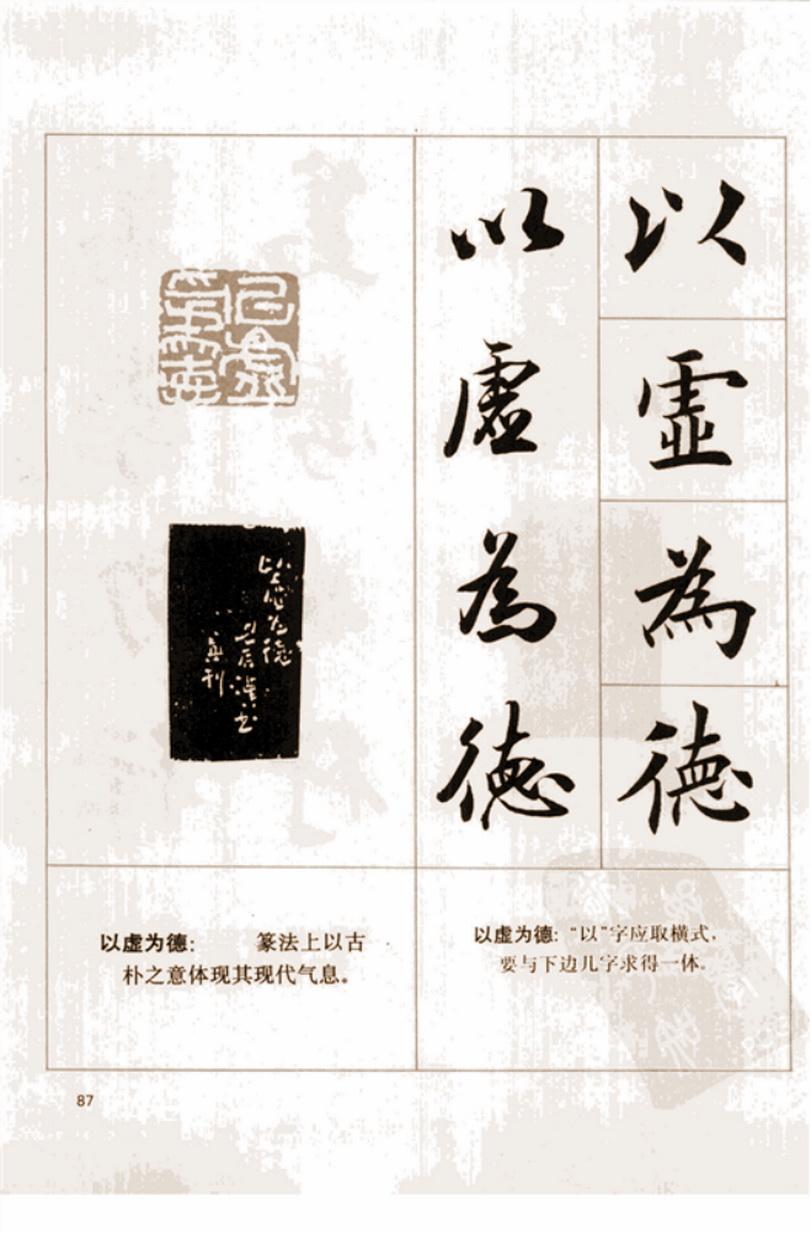 以虚為德
以虚為德
以虚为德
以虚为德: 篆法上以古
朴之意体现其现代气息。
以虚为德: “以”字应取横式,
要与下边几字求得一体。
87